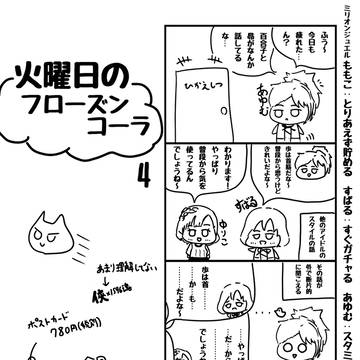 ミリオンジュエル ももこ：とりあえず貯める すばる：すぐガチャる あゆむ：スタミ
火曜日の
フローズン
コーラ
4
ふう〜
今日も
疲れた…
ん？
百合子と
昴がなんか
話してる
な…
ひかえしつ
あゆむ
歩は首筋だな〜
普段から思うけど
きれいだよな〜
わかります！
やっぱり
普段から気を
使ってるん
でしょうね〜
すばる
ゆりこ
他のアイドルの
スタイルの話
その話が
外で断片的
に聞こえる
歩は首…
…か…も…
…だよな〜
やっぱり
普段から
…
でしょう
あまり理解してない
ポストカード
780円(税別)